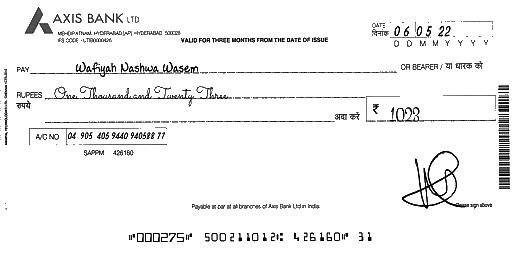 AXIS BANK LTD
MEHDIPATNAM, HYDERABAD (AP) HYDERABAD 500028
IFS CODE - UTIB0000426
VALID FOR THREE MONTHS FROM THE DATE OF ISSUE
DATE
दिनांक 06 05 22
D D M M Y Y Y Y
PAY Wafiyah Nashwa Wasem OR BEARER / या धारक को
RUPEES One Thousand and Twenty Three
रुपये अदा करें ₹ 1023
A/C NO 04 905 405 9440 940588 77
SAPPM 426160
Payable at par at all branches of Axis Bank Ltd in India.
Please sign above
⑈000275⑈ 500211012⑆ 426160⑈ 31